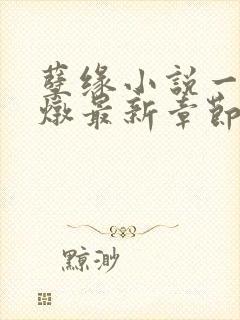 孽缘小说一
燉最新章节
黥渺